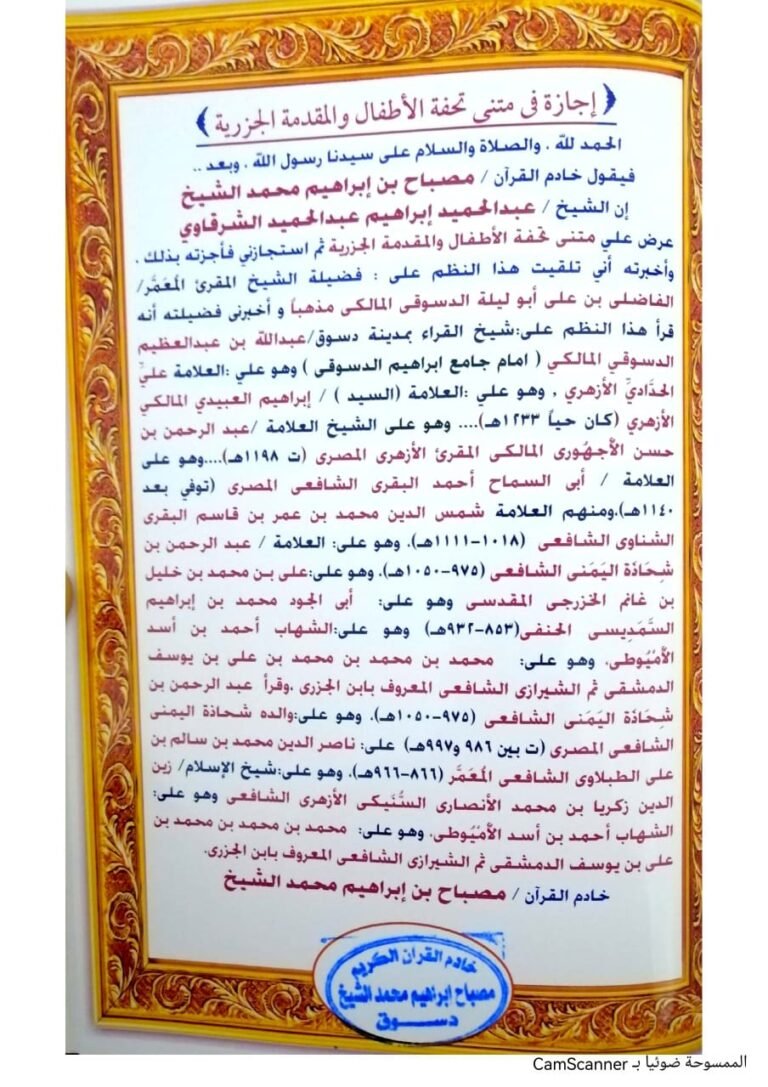 ﴿ إجازة فى متنى تحفة الأطفال والمقدمة الجزرية ﴾
الحمد لله ، والصلاة والسلام على سيدنا رسول الله ، وبعد ..
فيقول خادم القرآن / مصباح بن إبراهيم محمد الشيخ
إن الشيخ / عبدالحميد إبراهيم عبدالحميد الشرقاوي
عرض علي متنى تحفة الأطفال والمقدمة الجزرية ثم استجازني فأجزته بذلك ،
وأخبرته أني تلقيت هذا النظم على : فضيلة الشيخ المقرئ المُعَمَّر/
الفاضلى بن على أبو ليلة الدسوقى المالكى مذهباً و أخبرنى فضيلته أنه
قرأ هذا النظم على:شيخ القراء بمدينة دسوق/عبدالله بن عبدالعظيم
الدسوقي المالكي ( امام جامع ابراهيم الدسوقى ) وهو علي :العلامة عليِّ
الحدَّاديِّ الأزهري , وهو علي :العلامة (السيد ) / إبراهيم العبيدي المالكي
الأزهري (كان حياً ١٢٣٣هـ).... وهو على الشيخ العلامة /عبد الرحمن بن
حسن الأجهُورى المالكى المقرئ الأزهرى المصرى (ت ١١٩٨هـ)....وهو على
العلامة / أبى السماح أحمد البقرى الشافعى المصرى (توفي بعد
١١٤٠هـ).ومنهم العلامة شمس الدين محمد بن عمر بن قاسم البقرى
الشناوى الشافعى (١٠١٨-١١١١هـ). وهو على: العلامة / عبد الرحمن بن
شحَاذَة اليَمَنى الشافعى (٩٧٥-١٠٥٠هـ). وهو على:على بن محمد بن خليل
بن غانم الخزرجى المقدسى وهو على: أبى الجود محمد بن إبراهيم
السَّمَدِيسى الحنفى(٨٥٣-٩٣٢هـ) وهو على:الشهاب أحمد بن أسد
الأُمْيُوطى. وهو على: محمد بن محمد بن محمد بن على بن يوسف
الدمشقى ثم الشيرازى الشافعى المعروف بابن الجزرى .وقرأ عبد الرحمن بن
شحَاذَة اليَمَنى الشافعى (٩٧٥-١٠٥٠هـ). وهو على:والده شحاذة اليمنى
الشافعى المصرى (ت بين ٩٨٦ و٩٩٧هـ) على: ناصر الدين محمد بن سالم بن
على الطبلاوى الشافعى المُعَمَّر (٨٦٦-٩٦٦هـ). وهو على:شيخ الإسلام/ زين
الدين زكريا بن محمد الأنصارى السُّنَيكى الأزهرى الشافعى وهو على:
الشهاب أحمد بن أسد الأُمْيُوطى. وهو على: محمد بن محمد بن محمد بن
على بن يوسف الدمشقى ثم الشيرازى الشافعى المعروف بابن الجزرى.
خادم القرآن / مصباح بن إبراهيم محمد الشيخ
خادم القران الكريم
مصباح ابراهيم محمد الشيخ
دسوق
الممسوحة ضوئيا بـ CamScanner